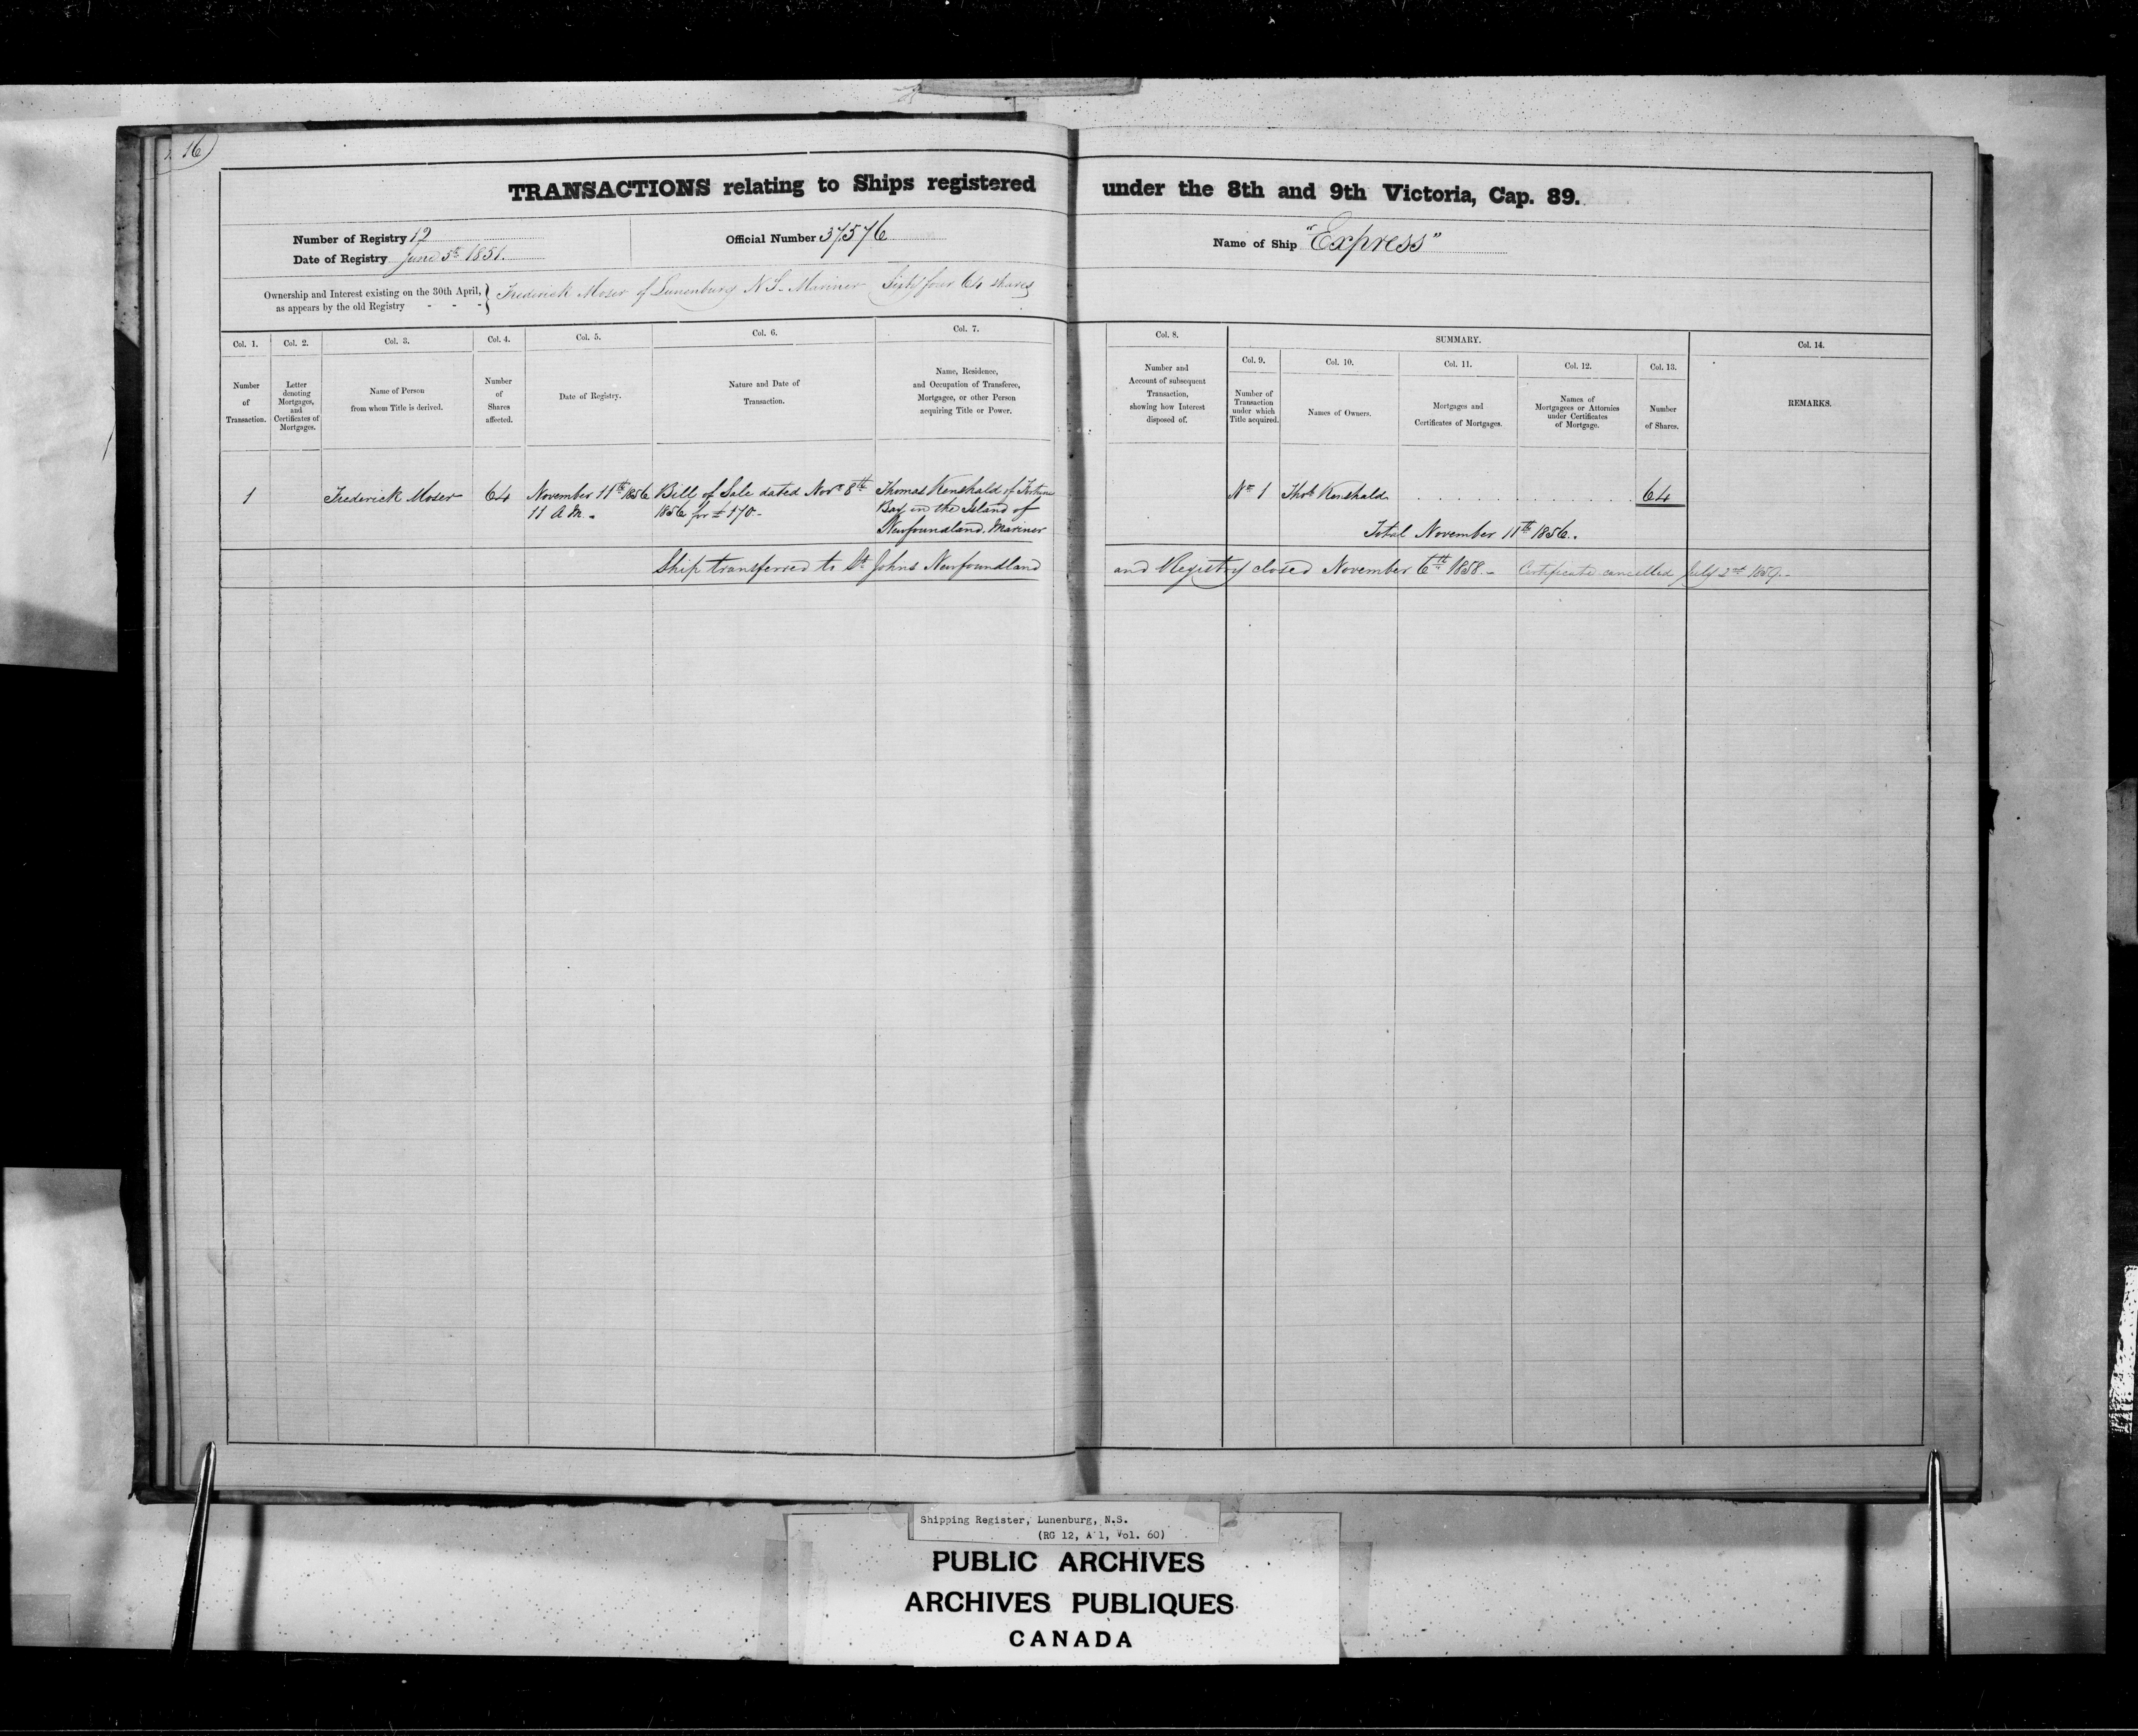 16
TRANSACTIONS relating to Ships registered under the 8th and 9th Victoria, Cap. 89.
Number of Registry 12
Date of Registry June 5th 1851.
Official Number 37,576
Name of Ship "Express"
Ownership and Interest existing on the 30th April, as appears by the old Registry - - - } Frederick Moser of Lunenburg N.S. Mariner Sixty four 64 shares
Col. 1.
Number of Transaction.
Col. 2.
Letter denoting Mortgages, and Certificates of Mortgages.
Col. 3.
Name of Person from whom Title is derived.
Col. 4.
Number of Shares affected.
Col. 5.
Date of Registry.
Col. 6.
Nature and Date of Transaction.
Col. 7.
Name, Residence, and Occupation of Transferee, Mortgagee, or other Person acquiring Title or Power.
Col. 8.
Number and Account of subsequent Transaction, showing how Interest disposed of.
SUMMARY.
Col. 9.
Number of Transaction under which Title acquired.
Col. 10.
Names of Owners.
Col. 11.
Mortgages and Certificates of Mortgages.
Col. 12.
Names of Mortgagees or Attornies under Certificates of Mortgage.
Col. 13.
Number of Shares.
Col. 14.
REMARKS.
1
Frederick Moser
64
November 11th 1856
11 A.M.
Bill of Sale dated Novr 8th
1856 for £170.-
Thomas Kenshald of Fortune
Bay in the Island of
Newfoundland. Mariner
No 1
Thos Kenshald
64
Total November 11th 1856.
Ship transferred to St Johns Newfoundland and Registry closed November 6th 1858.- Certificate cancelled July 2nd 1859.-
Shipping Register, Lunenburg, N.S.
(RG 12, A 1, Vol. 60)
PUBLIC ARCHIVES
ARCHIVES PUBLIQUES
CANADA